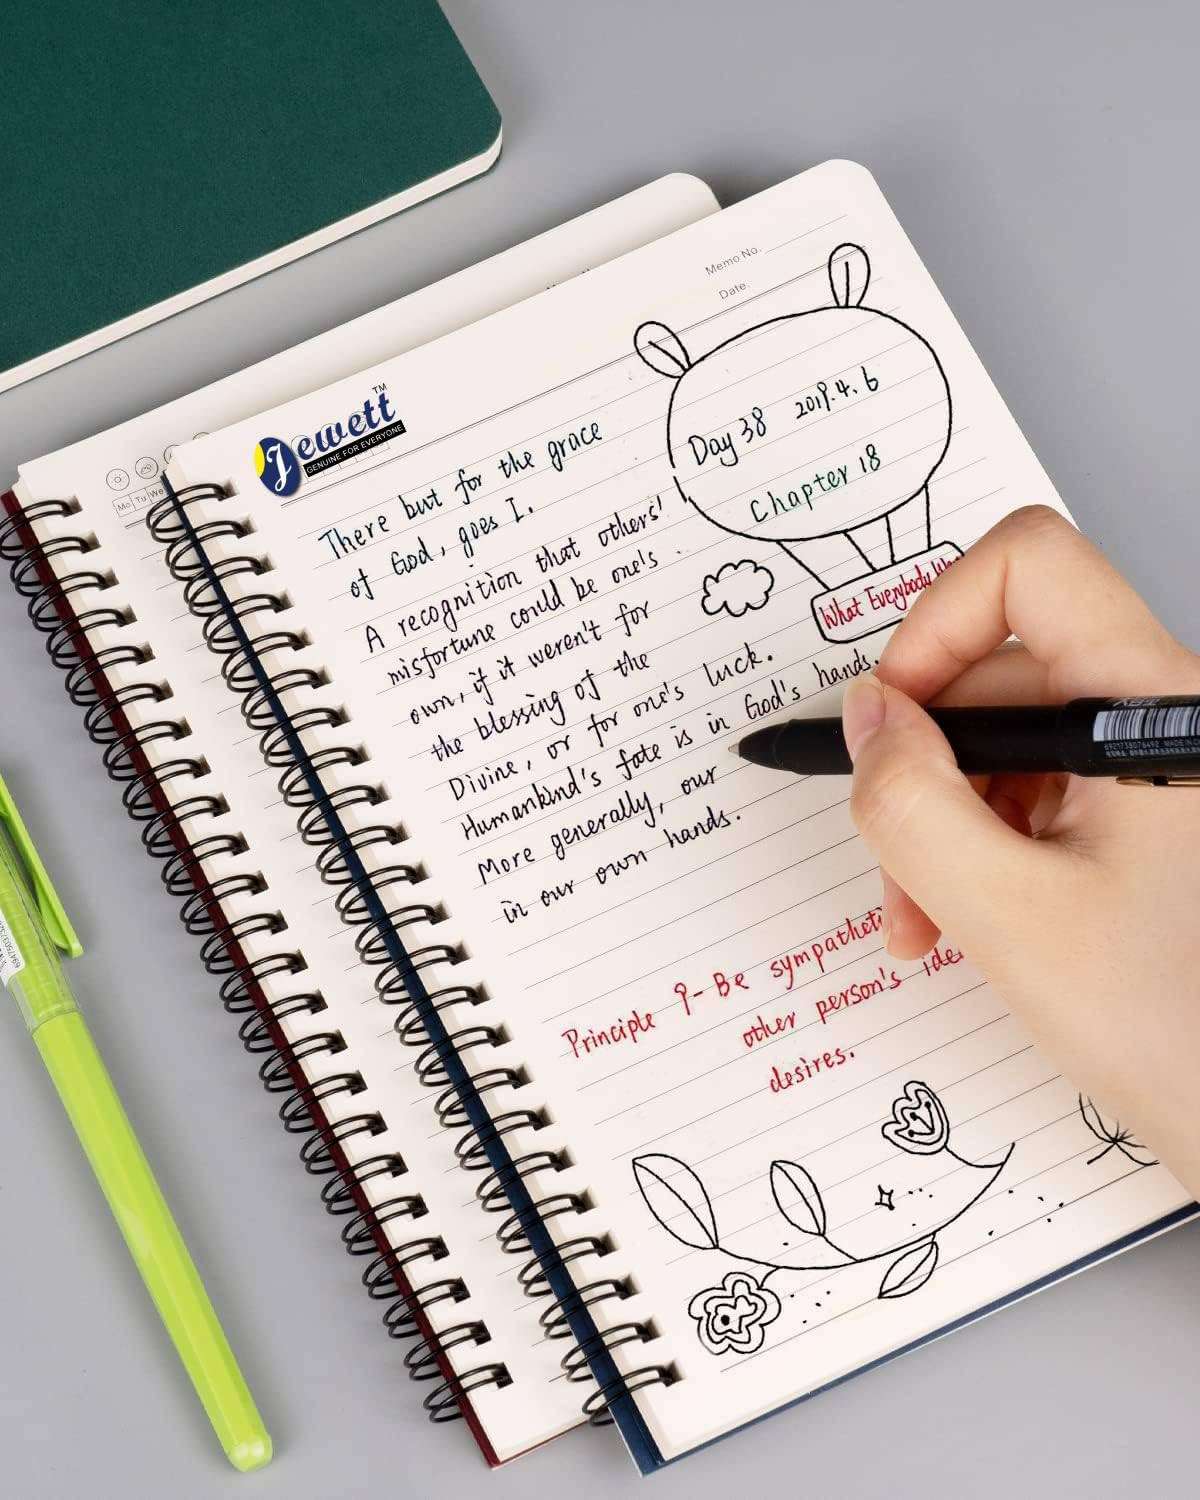 Memo No.
Date
Jewett™
GENUINE FOR EVERYONE
Mo Tu We
Day 38 2019.4.6
Chapter 18
What Everybody
There but for the grace
of God, goes I.
A recognition that others'
misfortune could be one's
own, if it weren't for
the blessing of the
Divine, or for one's luck.
Humankind's fate is in God's hands.
More generally, our
in our own hands.
Principle 9- Be sympathetic
other person's
desires.
MADE IN